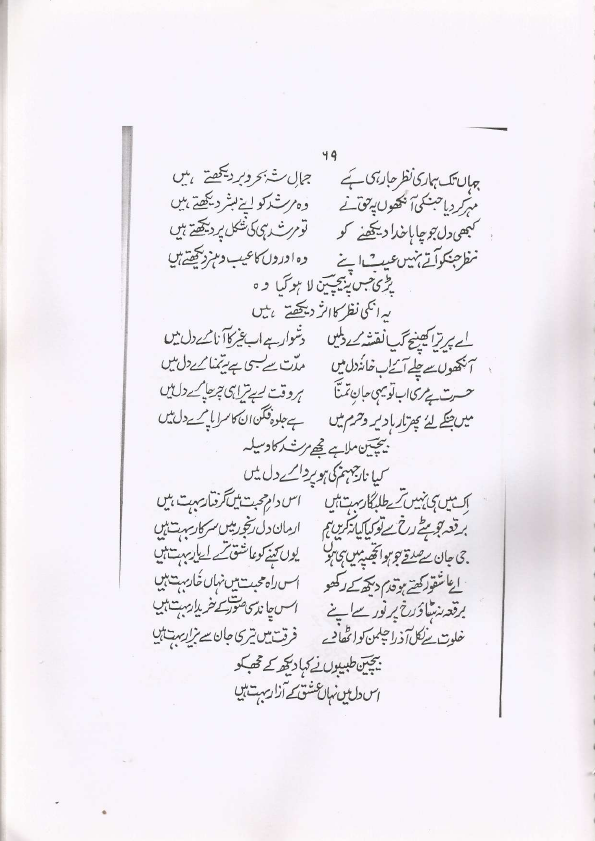 ۶۹
جہاں تک ہماری نظر جا رہی ہے جمالِ شہِ بحر و بر دیکھتے ہیں
مہر کر دیا جنکی آنکھوں پہ حق نے وہ مرشد کو اپنے بشر دیکھتے ہیں
کبھی دل جو چاہا خدا دیکھنے کو تو مرشد ہی کی شکل پر دیکھتے ہیں
نظر جنکو آتے نہیں عیب اپنے وہ اوروں کا عیب و ہنر دیکھتے ہیں
پڑی جس پہ بیچین لا ہو گیا وہ
یہ انکی نظر کا اثر دیکھتے ہیں
اے پیر ترا کھینچ گیا نقشہ مرے دلمیں دشوار ہے اب غیر کا آنا مرے دل میں
آنکھوں سے چلے آئے اب خانہ دل میں مدت سے بسی ہے یہ تمنا مرے دل میں
حسرت ہے مری اب تو یہی جانِ تمنّا ہر وقت رہے تیرا ہی چرچا مرے دل میں
میں جنکے لئے پھرتا رہا دیر و حرم میں ہے جلوہ فگن ان کا سراپا مرے دل میں
بیچین ملا ہے مجھے مرشد کا وسیلہ
کیا نارِ جہنم کی ہو پروا مرے دل میں
اک میں ہی نہیں ترے طلبگار بہت ہیں اس دامِ محبت میں گرفتار بہت ہیں
برقعہ جو ہٹے رخ سے تو کیا کیا نہ کریں ہم ارمان دل رنجور میں سرکار بہت ہیں
جی جان سے صدقے جو ہوا تجھپہ میں ہی ہوں یوں کہنے کو عاشق ترے اے یار بہت ہیں
اے عاشقو رکھتے ہو قدم دیکھ کے رکھو اس راہِ محبت میں نہاں خار بہت ہیں
برقعہ نہ ہٹاؤ رخِ پر نور سے اپنے اس چاند سی صورت کے خریدار بہت ہیں
خلوت سے نکل آ ذرا چلمن کو اٹھا دے فرقت میں تیری جان سے بیزار بہت ہیں
بیچین طبیبوں نے کہا دیکھ کے مجھکو
اس دل میں نہاں عشق کے آزار بہت ہیں